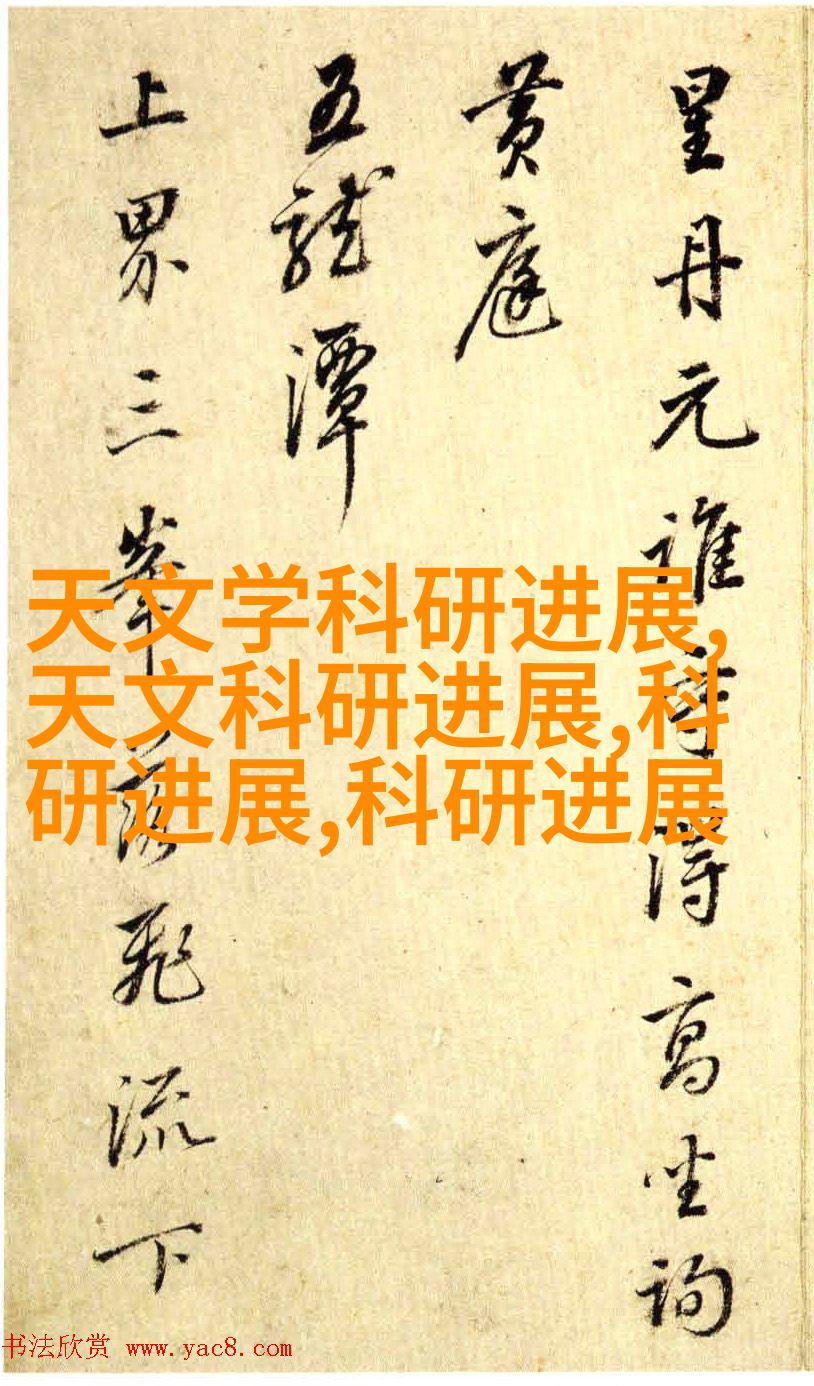 星丹元誰許得高坐詢
黄庭
五龍潭
上界三峯落飛流下
天文学科研进展,
天文科研进展,科
研进展,科研进展
书法欣赏 www.yac8.com